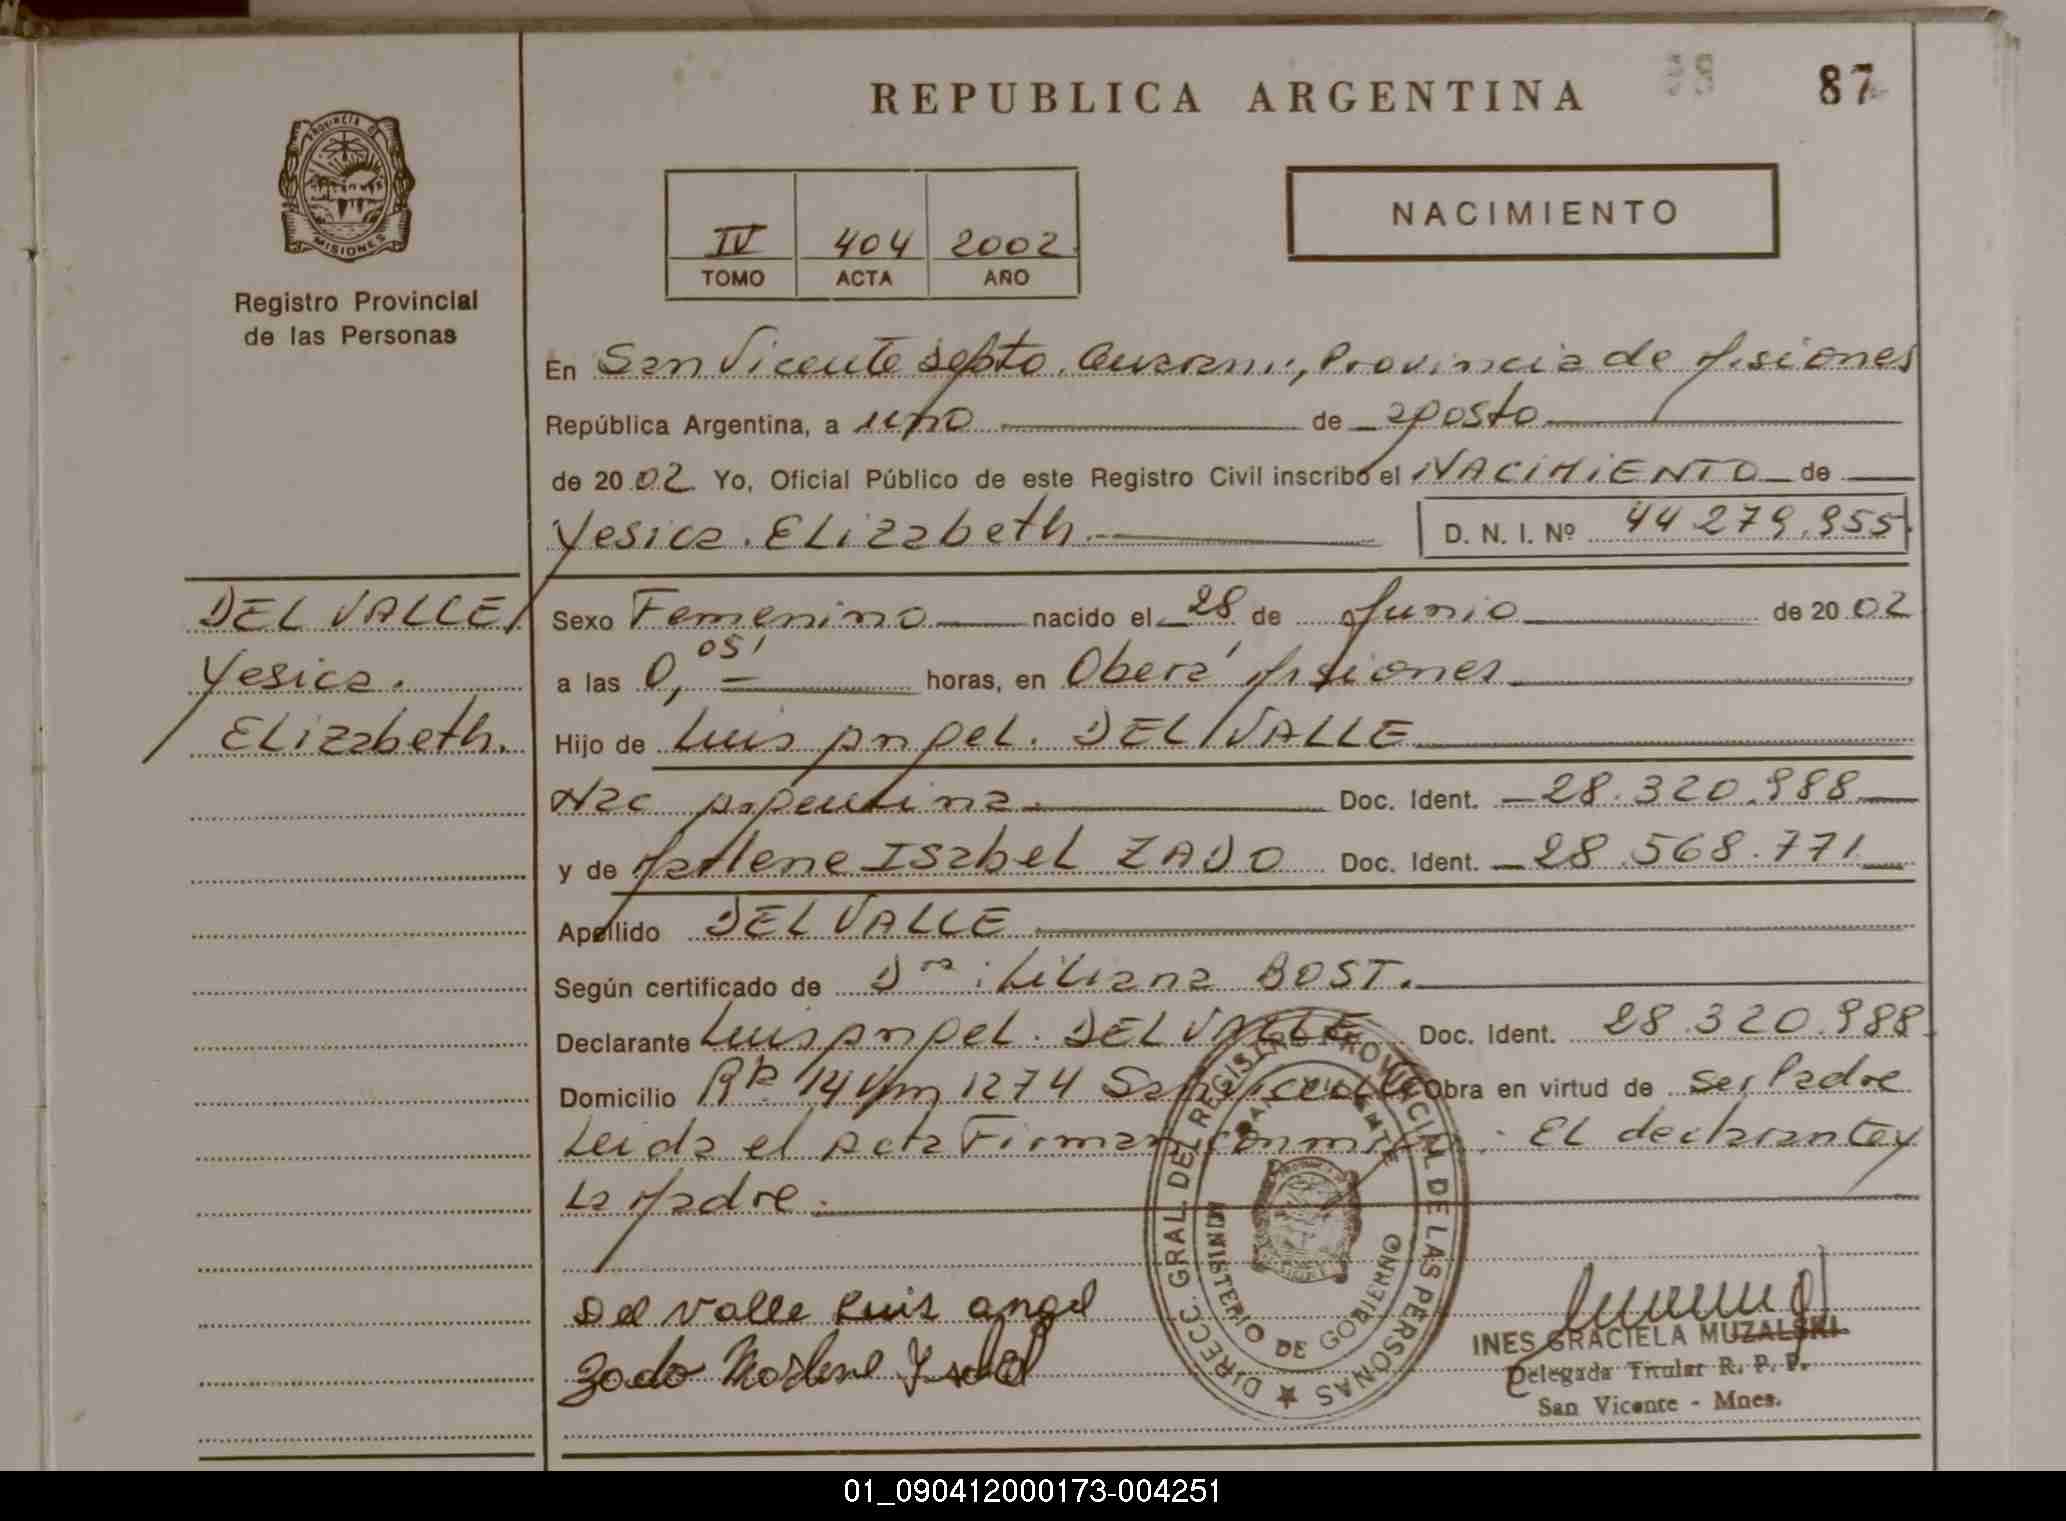 REPUBLICA ARGENTINA
87
PROVINCIA DE
MISIONES
Registro Provincial
de las Personas
IV 404 2002
TOMO ACTA AÑO
NACIMIENTO
En San Vicente Depto. Guarani, Provincia de Misiones
República Argentina, a uno de agosto
de 2002 Yo, Oficial Público de este Registro Civil inscribo el NACIMIENTO de
Yesica. Elizabeth.
D. N. I. Nº 44 279.955
DEL VALLE
Yesica.
Elizabeth.
Sexo Femenino nacido el 28 de Junio de 2002
a las 0, 05' horas, en Oberá Misiones
Hijo de Luis Angel. DEL VALLE
Nac Argentina. Doc. Ident. 28.320.988
y de Marlene Isabel ZADO Doc. Ident. 28.568.771
Apellido DEL VALLE
Según certificado de Dra: Liliana BOST.
Declarante Luis Angel. DEL VALLE Doc. Ident. 28.320.988
Domicilio Rta. 14 Km 1274 San Vicente Obra en virtud de ser Padre
Leida el Acta Firman conmigo: El declarante y
La Madre.
Del Valle Luis angel
Zado Marlene Ysabel
DIRECC. GRAL. DEL REGISTRO PROVINCIAL DE LAS PERSONAS
SAN VICENTE
MINISTERIO DE GOBIERNO
INES GRACIELA MUZALSKI
Delegada Titular R. P. P.
San Vicente - Mnes.
01_090412000173-004251